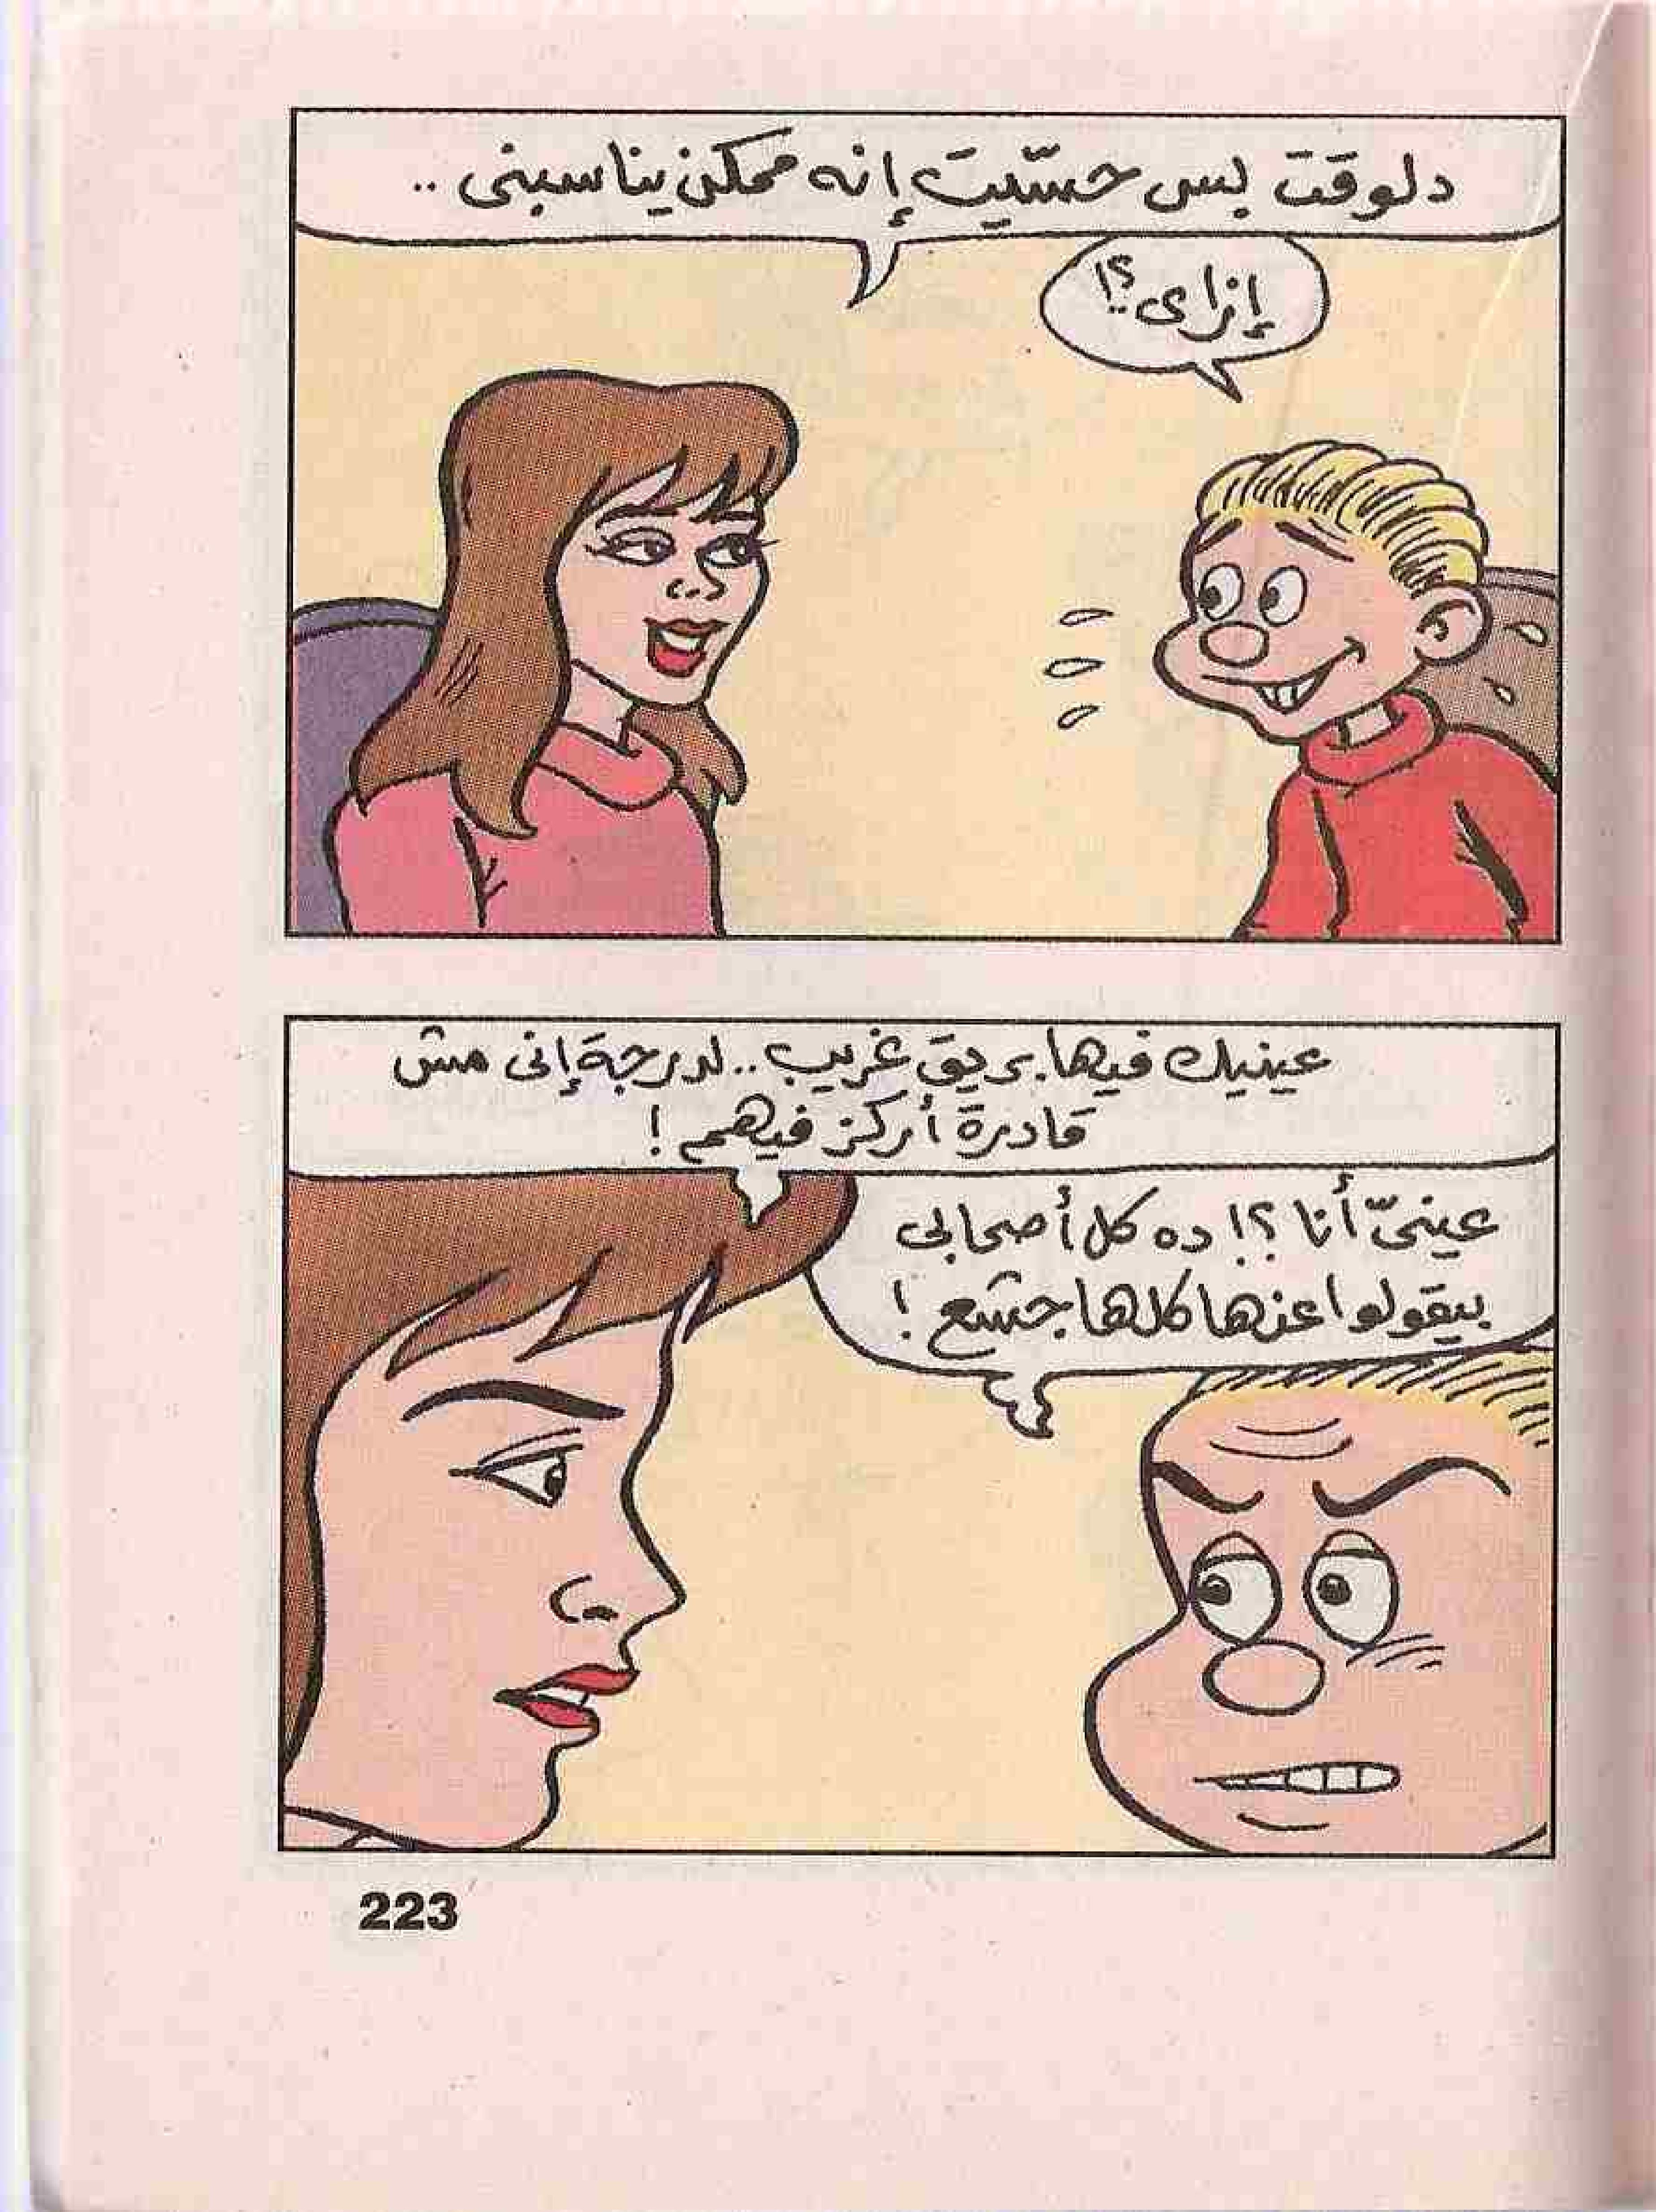 دلوقت بس حسّيت إنه ممكن يناسبنى ..
إزاى ؟!
عينيك فيها بريق غريب .. لدرجة إنى مش
قادرة أركز فيهم !
عينىّ أنا ؟! ده كل أصحابى
بيقولوا عنها كلها جشع !
223